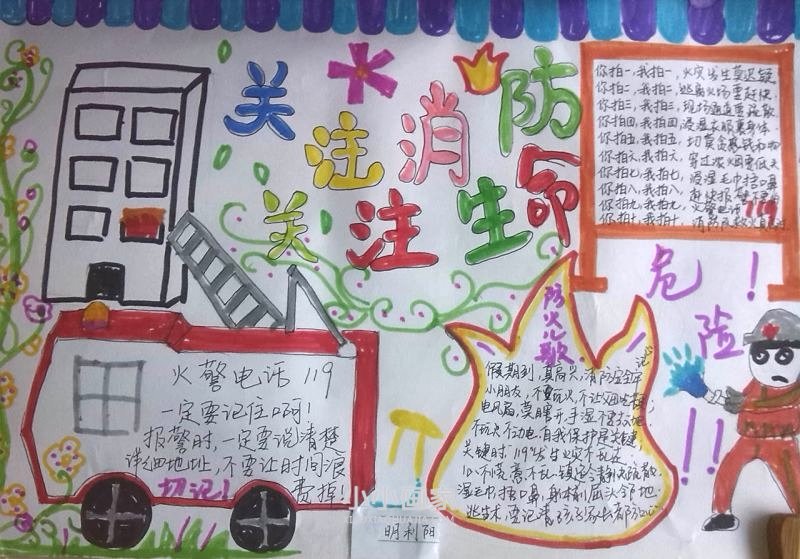 关注消防
关注生命
你拍一，我拍一，火灾发生莫迟疑
你拍二，我拍二，逃离火场要赶快
你拍三，我拍三，现场通道要疏散
你拍四，我拍四，浸湿衣服裹身体
你拍五，我拍五，切莫贪恋钱和物
你拍六，我拍六，穿过浓烟要低头
你拍七，我拍七，浸湿毛巾捂口鼻
你拍八，我拍八，赶快报警
你拍九，我拍九，火警电话119
你拍十，我拍十，消防
危险！
！！
火警电话 119
一定要记住啊！
报警时，一定要说清楚
详细地址，不要让时间浪
费掉！
切记！
防火歌
假期到，真高兴，消防安全牢记
小朋友，不要玩火，不让父母
电风扇，莫瞎弄，手湿不要
不玩火不动电，自我保护是关键
关键时，119
慌
湿毛巾捂口鼻，
要记清，
小小画家
XIAOXIAOHUAJIA.COM
明利阳